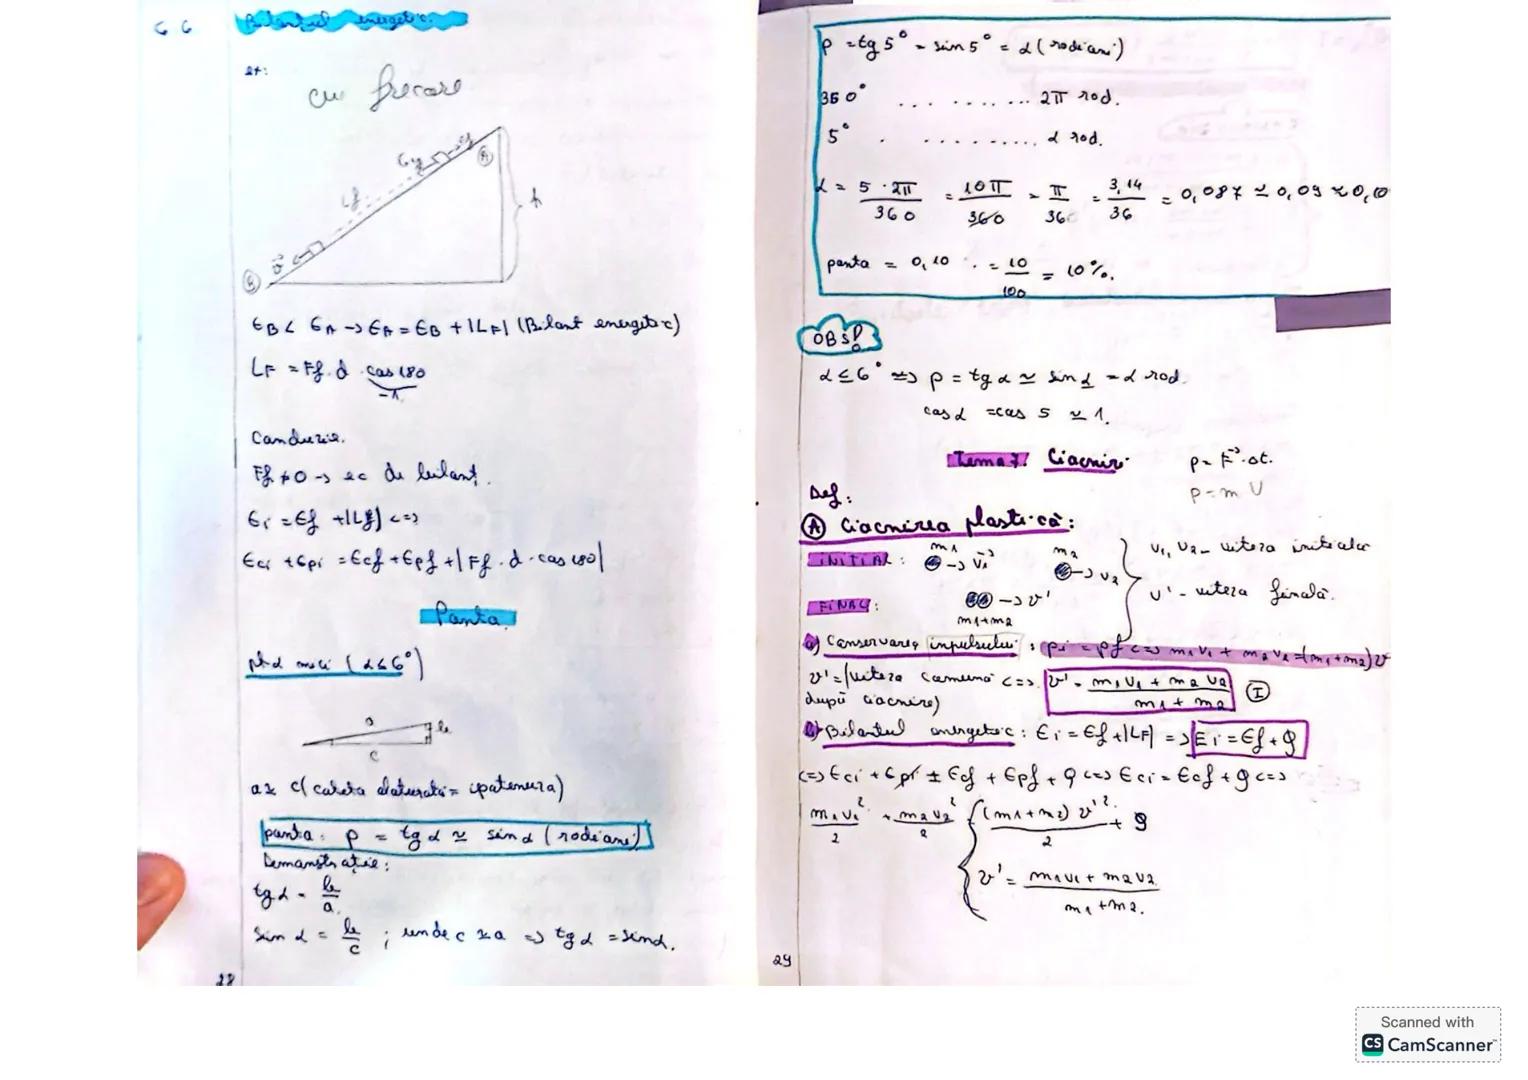 6 6 Bilanțul energetic.
ex:
cu frecare
Gy
A
Lf
h
B
EB < EA -> EA = EB + |LF| (Bilanț energetic)
LF = Ff. d . cos 180
-1
Concluzie.
Ff ≠ 0 -> ec de bilanț.
Ei = Ef + |Lf| <=>
Eci + Epi = Ecf + Epf + | Ff. d . cos 180|
Panta
pt α mici (α ≤ 6°)
a
b
c
a ≃ c( cateta alaturată = ipotenuza)
panta: p = tg α ≃ sin α (radiani)
Demonstrație:
tg α = b/a.
sin α = b/c ; unde c ≃ a => tg α = sin α.
28
p = tg 5° = sin 5° = α (radiani)
360° .......... 2π rad.
5° . .......... α rad.
α = 5 . 2π/360 = 10π/360 = π/36 = 3,14/36 = 0,087 ≃ 0,09 ≃ 0,10
panta = 0,10 . = 10/100 = 10%.
OBS!
α ≤ 6° => p = tg α ≃ sin α = α rad.
cos α = cos 5 ≃ 1.
Tema 7. Ciocniri. p = F . Δt.
Def: p = m V
A Ciocnirea plastică:
INIȚIAL: m1 -> v1 m2 -> v2 v1, v2 - viteza inițială
FINAL: -> v' v' - viteza finală.
m1+m2
a) Conservarea impulsului : pi = pf <=> m1v1 + m2v2 = (m1+m2)v
v' = (viteza comună <=> v' = m1v1 + m2v2 / m1 + m2 I
după ciocnire)
b) Bilanțul energetic: Ei = Ef + |LF| => Ei = Ef + Q
<=> Eci + Epi = Ecf + Epf + Q <=> Eci = Ecf + Q <=>
m1v1²/2 + m2v2²/2 { (m1+m2) v'²/2 + Q
v' = m1v1 + m2v2 / m1 + m2.
29
Scanned with
CS CamScanner